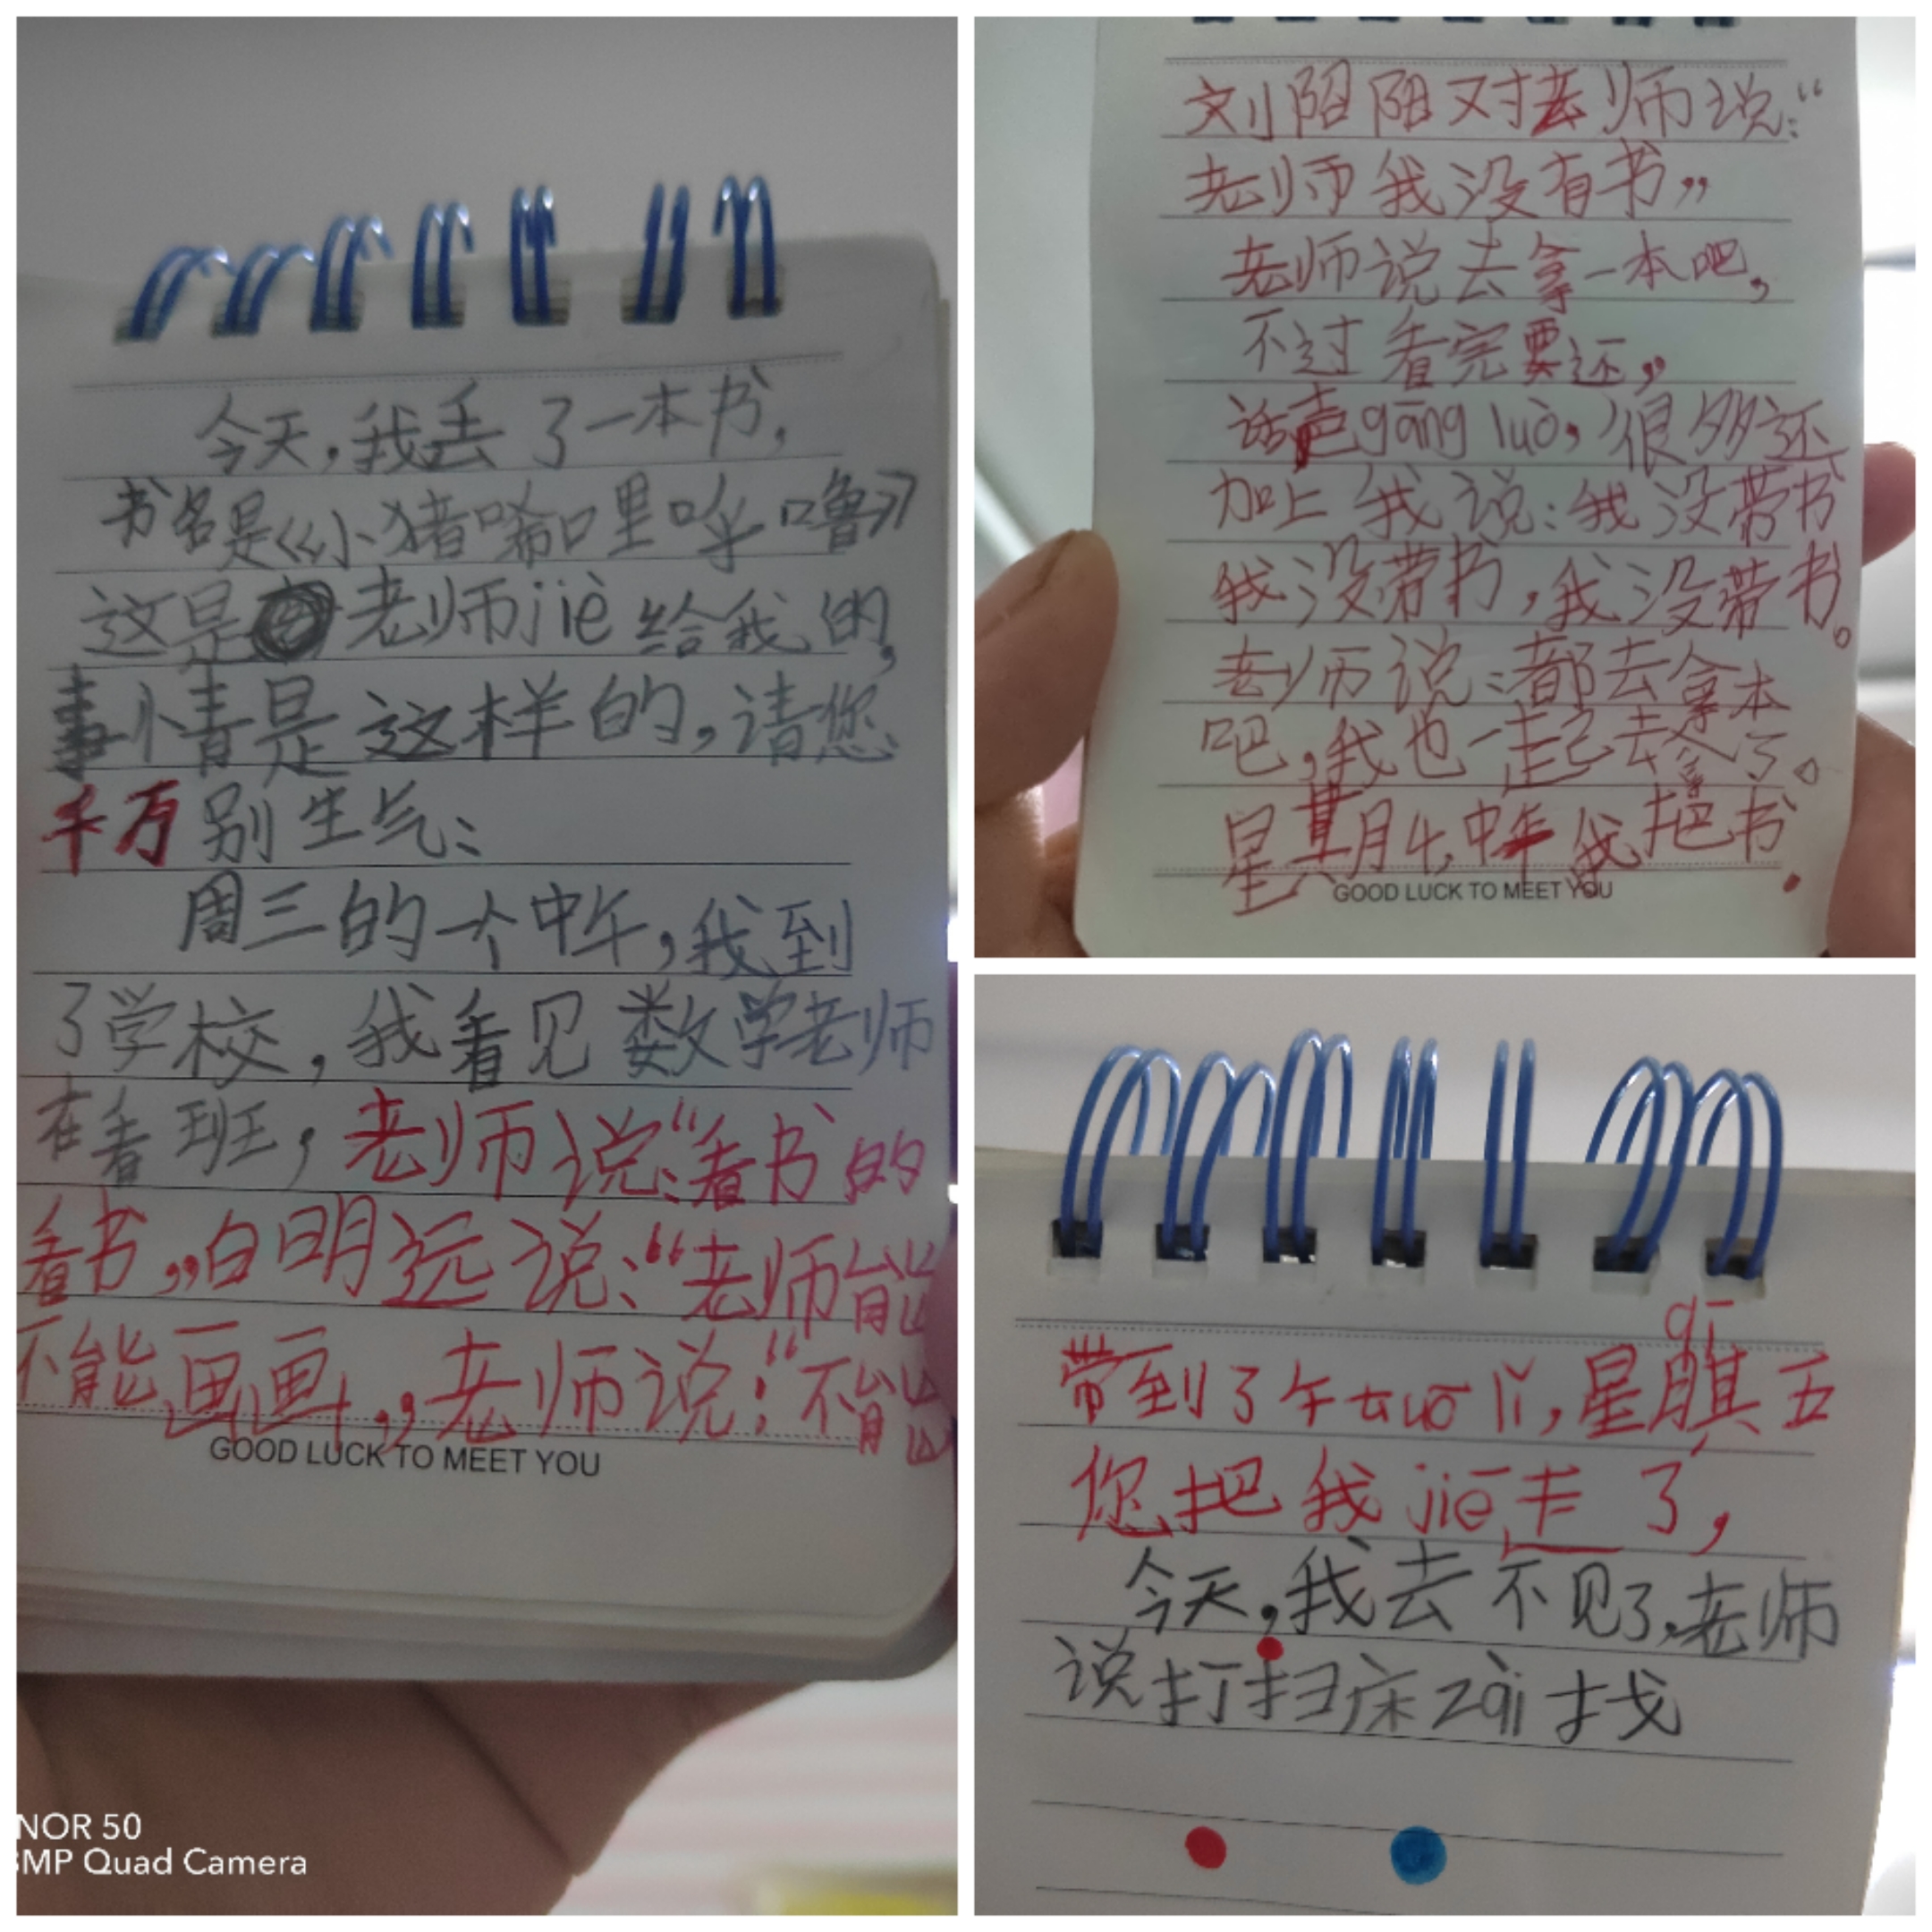 今天,我丢了一本书,
书名是《小猪唏哩呼噜》
这是老师jiè给我的,
事情是这样的,请您
千万别生气:
周三的一个中午,我到
了学校,我看见数学老师
在看班,老师说:“看书的
看书,,白明远说:“老师能
不能画画,,老师说:“不能
GOOD LUCK TO MEET YOU
NOR 50
MP Quad Camera
刘阳对老师说:“
老师我没有书”
老师说去拿一本吧,
不过看完要还,,
话声gāng luò,很多还
加上我说:我没带书
我没带书,我没带书。
老师说:都去拿本
吧,我也一起去拿了。
星其月4,中午我把书
GOOD LUCK TO MEET YOU
qī
带到了午tuō lǐ,星期五
您把我jiē走了,
今天,我去不见了,老师
说打扫床zài找